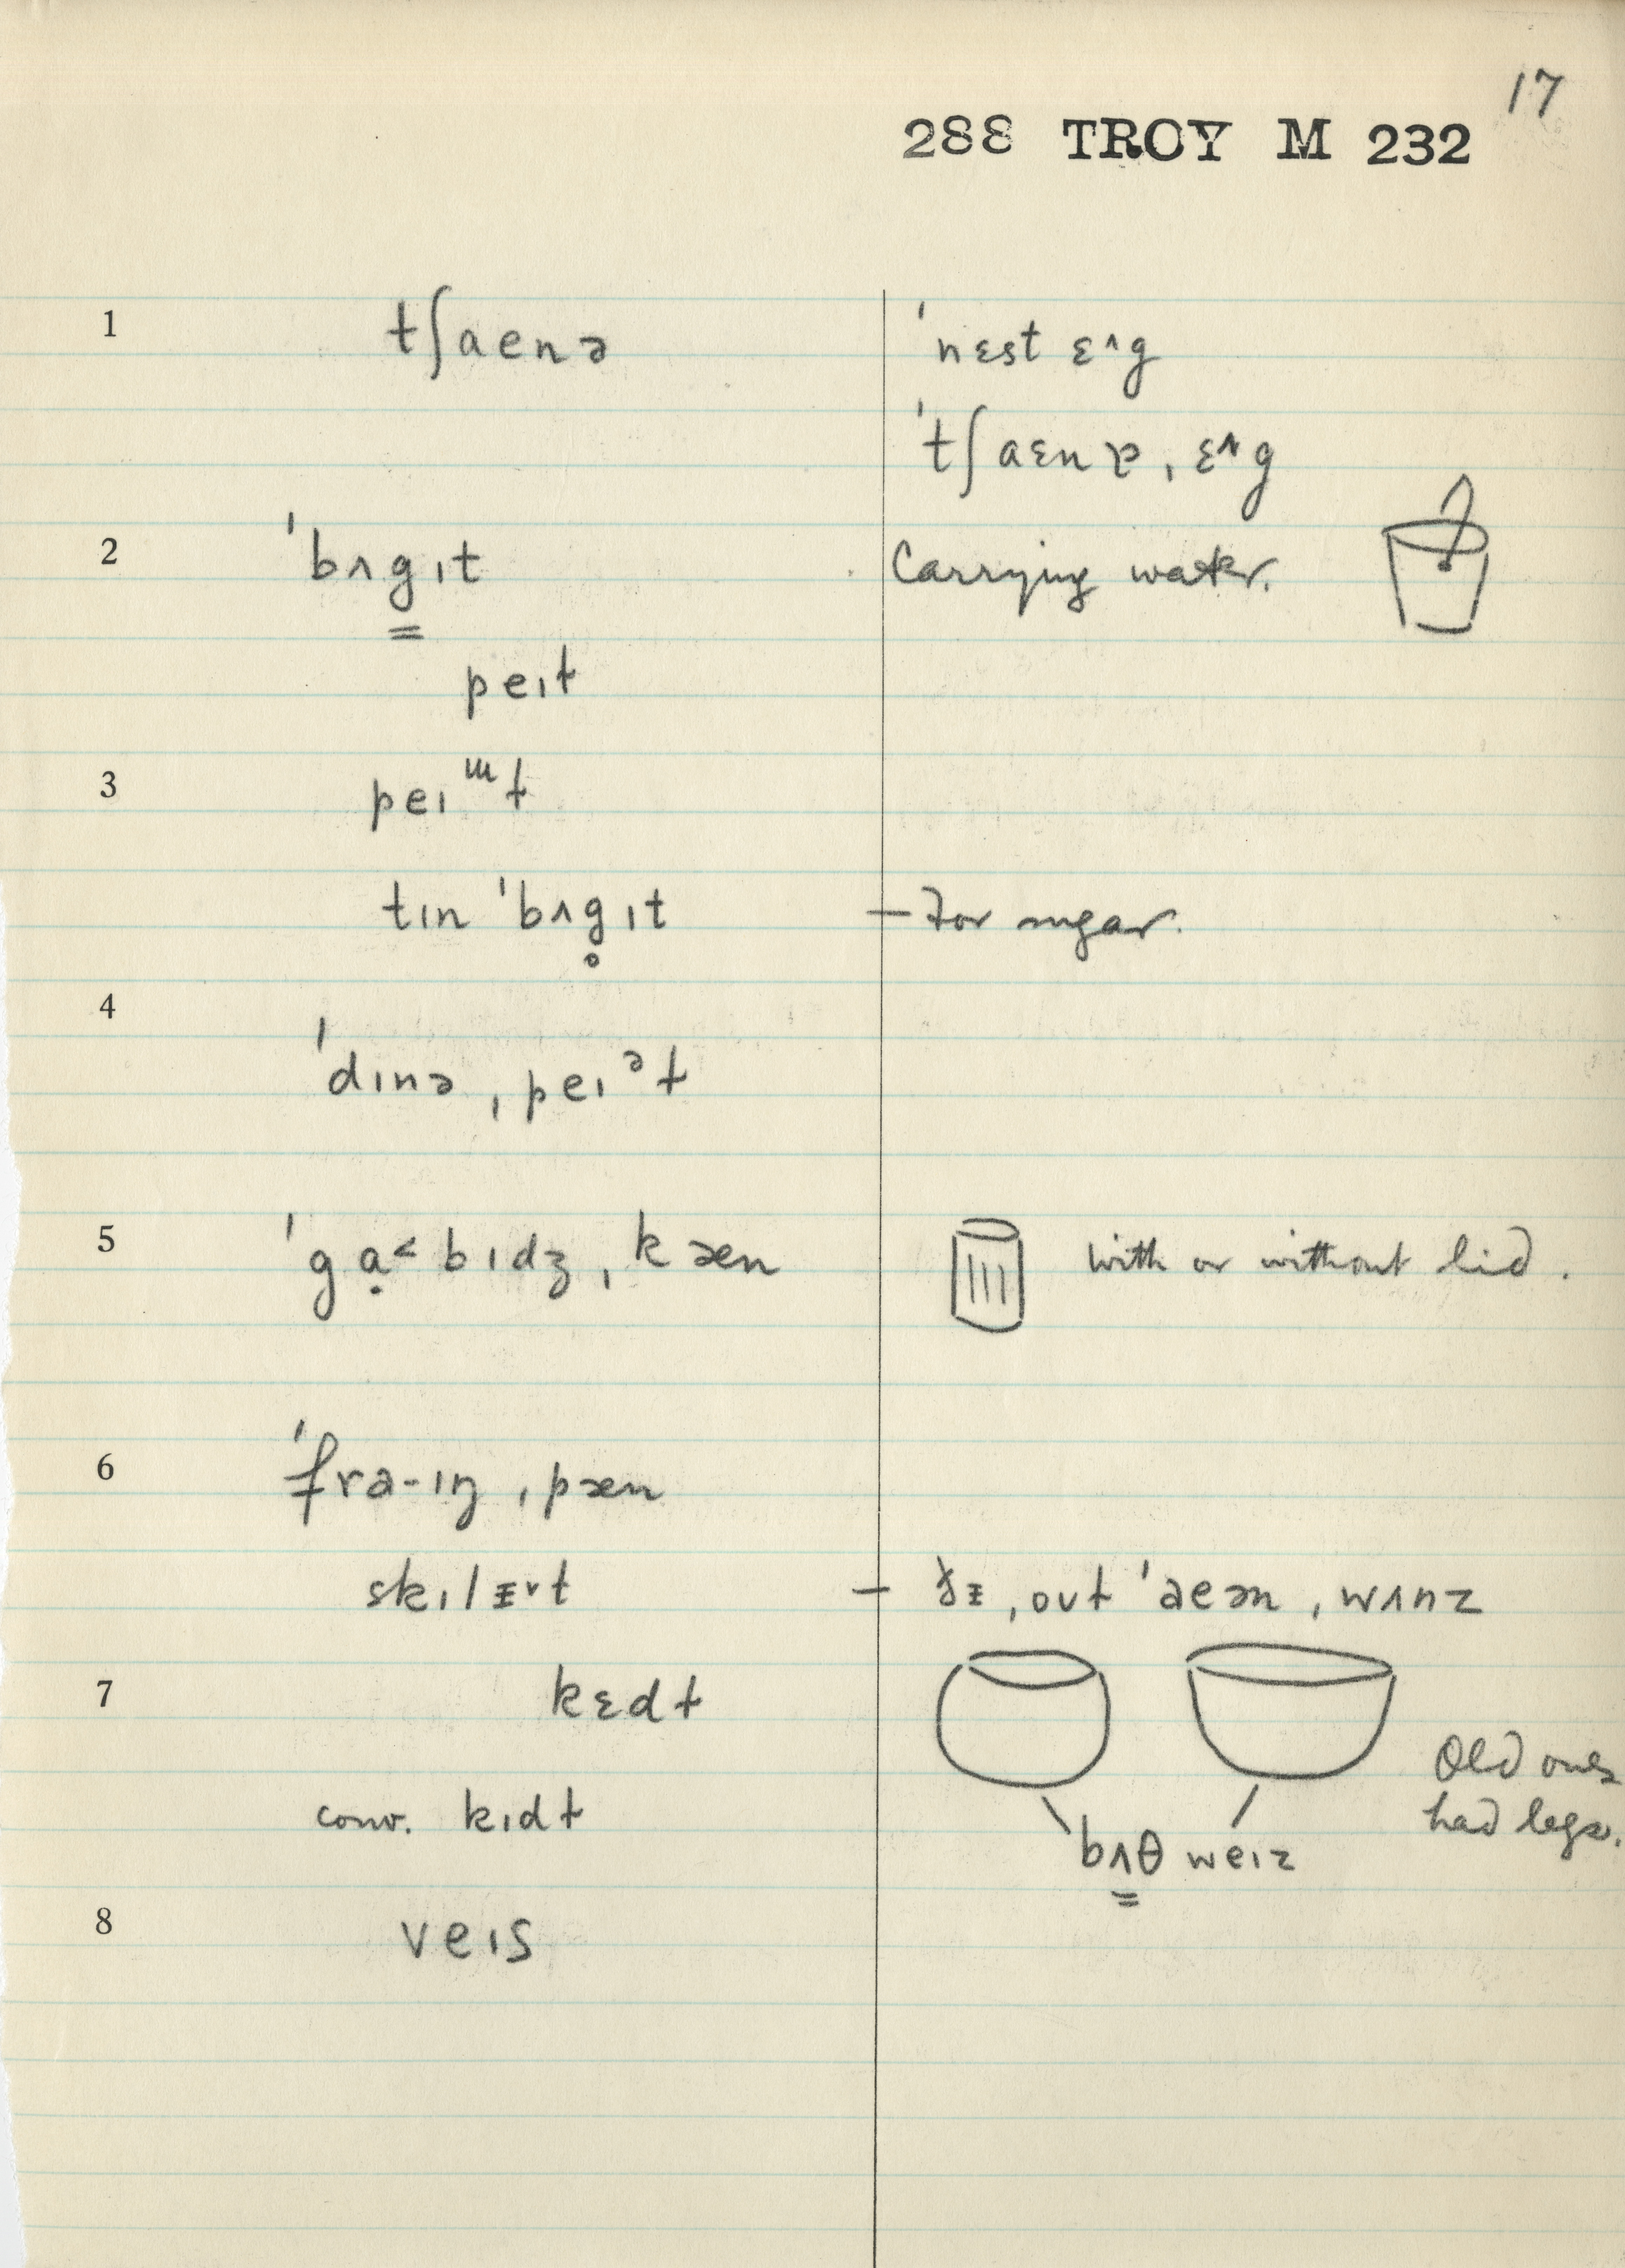 17
288 TROY M 232
1 tʃaenə ˈnɛst ɛ^g
ˈtʃaɛn ˌɛ^g
2 ˈbʌg̳ɪt Carrying water.
peɪɫ
3 peɪᵚɫ
tɪn ˈbʌg̥ɪt – For sugar.
4
ˈdɪnə ˌpeɪᵊɫ
5 ˈgạ˂bɪdʒ ˌkæn with or without lid.
6 ˈfra-ɪŋ ˌpæn
skɪlɪᵛt – ðɪ ˌoʊɫ ˈaeən ˌwʌnz
7 kɛdɫ
Old ones
had legs.
conv. kɪdɫ
bʌ̳θ weɪz
8 veɪs